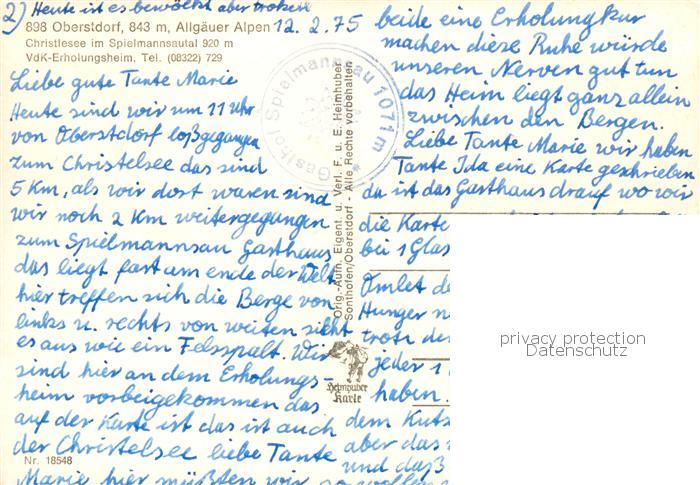 2) Heute ist es bewölkt aber trotzdem
898 Oberstdorf, 843 m, Allgäuer Alpen 12.2.75
Christlesee im Spielmannsautal 920 m
VdK-Erholungsheim, Tel. (08322) 729
Liebe gute Tante Marie
Heute sind wir um 11 Uhr
von Oberstdorf loßgegangen
zum Christelsee das sind
5 Km, als wir dort waren sind
wir noch 2 Km weitergegungen
zum Spielmannsau Gasthaus
das liegt fast am ende der Welt
hier treffen sich die Berge von
links u. rechts von weiten sieht
es aus wie ein Felsspalt. Wir
sind hier an dem Erholungs-
heim vorbeigekommen das
auf der Karte ist das ist auch
der Christelsee liebe Tante
Nr. 18548
Marie hier müßten wir
Gasthof Spielmannsau 1071m
Orig.-Aufn. Eigent. u. Verl. F. u. E. Heimhuber
Sonthofen/Oberstdorf - Alle Rechte vorbehalten
Heimhuber
Karte
beide eine Erholungkur
machen diese Ruhe würde
unseren Nerven gut tun
das Heim liegt ganz allein
zwischen den Bergen.
Liebe Tante Marie wir haben
Tante Ida eine Karte geschrieben
da ist das Gasthaus drauf wo wir
die Karte
bei 1 Glas
Omlet
Hunger
trotz
jeder 1
haben.
dem
aber das
und daß
privacy protection
Datenschutz